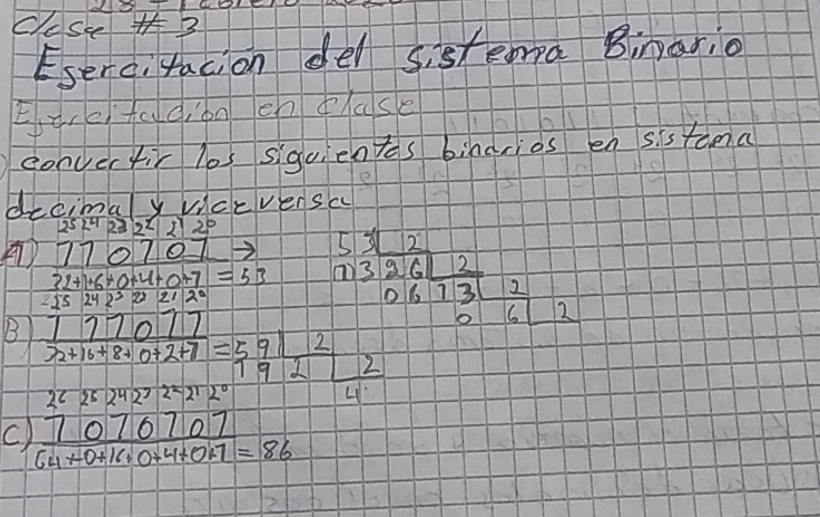 Clase # 3
Esercitación del sistema Binario
Egercitación en clase
convertir los siguientes binarios en sistema
decimal y viceversa
2⁵ 2⁴ 2³ 2² 2¹ 2⁰
A) 110101 → 53 2
32+16+0+4+0+1 = 53 13 26 2
06 13 2
0 6 2
2⁵ 2⁴ 2³ 2² 2¹ 2⁰
B) 111011
32+16+8+0+2+1 = 59 2
19 2 2
4
2⁶ 2⁵ 2⁴ 2³ 2² 2¹ 2⁰
C) 1010101
64+0+16+0+4+0+1 = 86